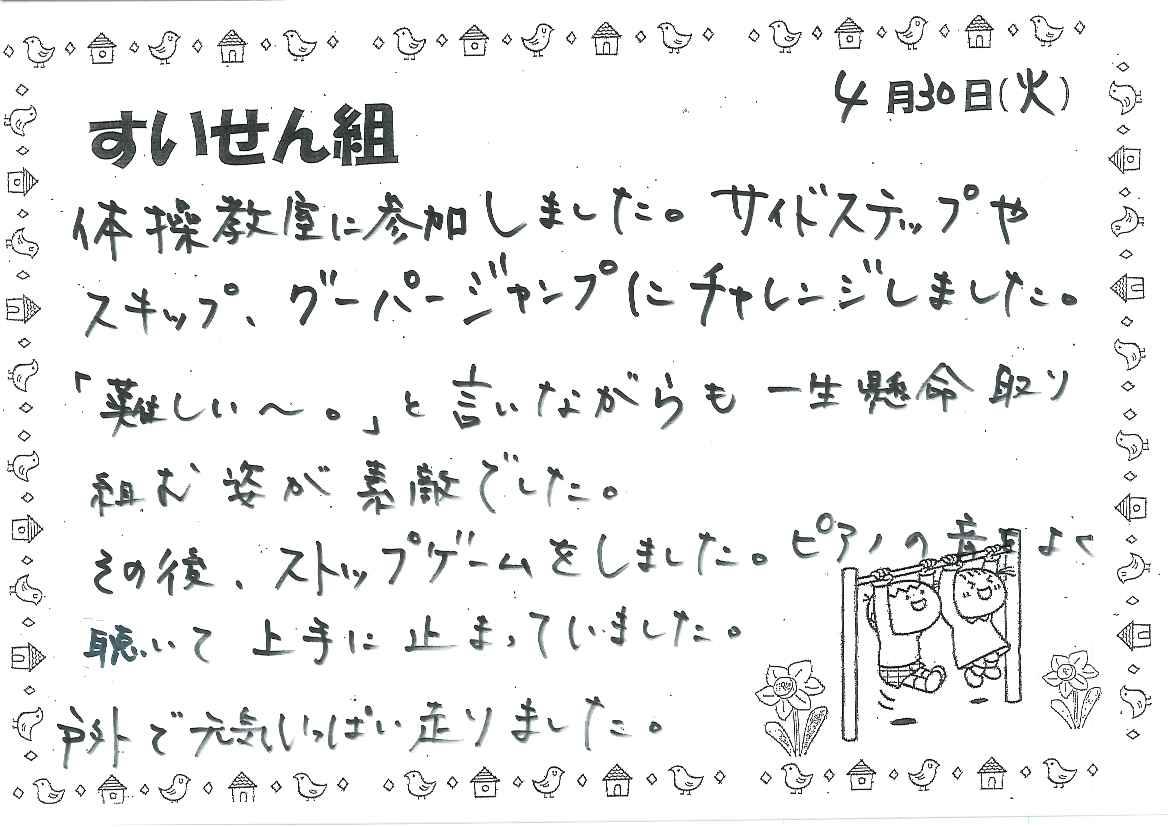 4月30日(火)
すいせん組
体操教室に参加しました。サイドステップや
スキップ、グーパージャンプにチャレンジしました。
「難しい〜。」と言いながらも一生懸命取り
組む姿が素敵でした。
その後、ストップゲームをしました。ピアノの音をよく
聴いて上手に止まっていました。
戸外で元気いっぱい走りました。